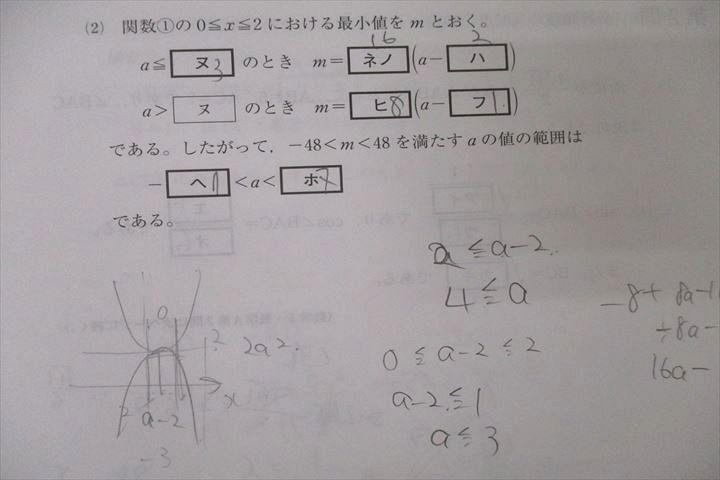 (2) 関数①の0≦x≦2における最小値をmとおく。
a≦ ヌ 3 のとき m= ネノ 16 (a− ハ 2)
a> ヌ のとき m= ヒ 8 (a− フ 1)
である。したがって，−48<m<48を満たすaの値の範囲は
− ヘ 1 <a< ホ 7
である。
2≦a-2.
4≦a
0≦a-2≦2
a-2≦1
a≦3
-8+8a-1
+8a-
16a-
0
2
2a².
x
2
a-2
-3